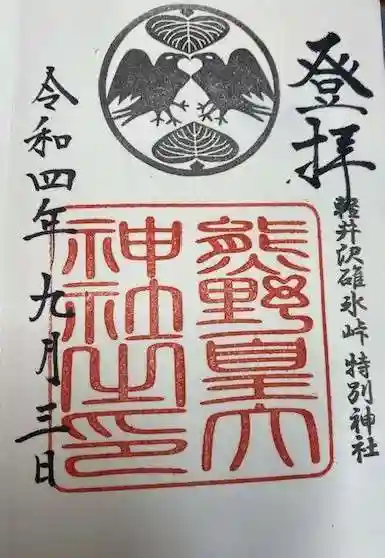 登拝
軽井沢碓氷峠 特別神社
熊野皇大
神社之印
令和四年 九月三日